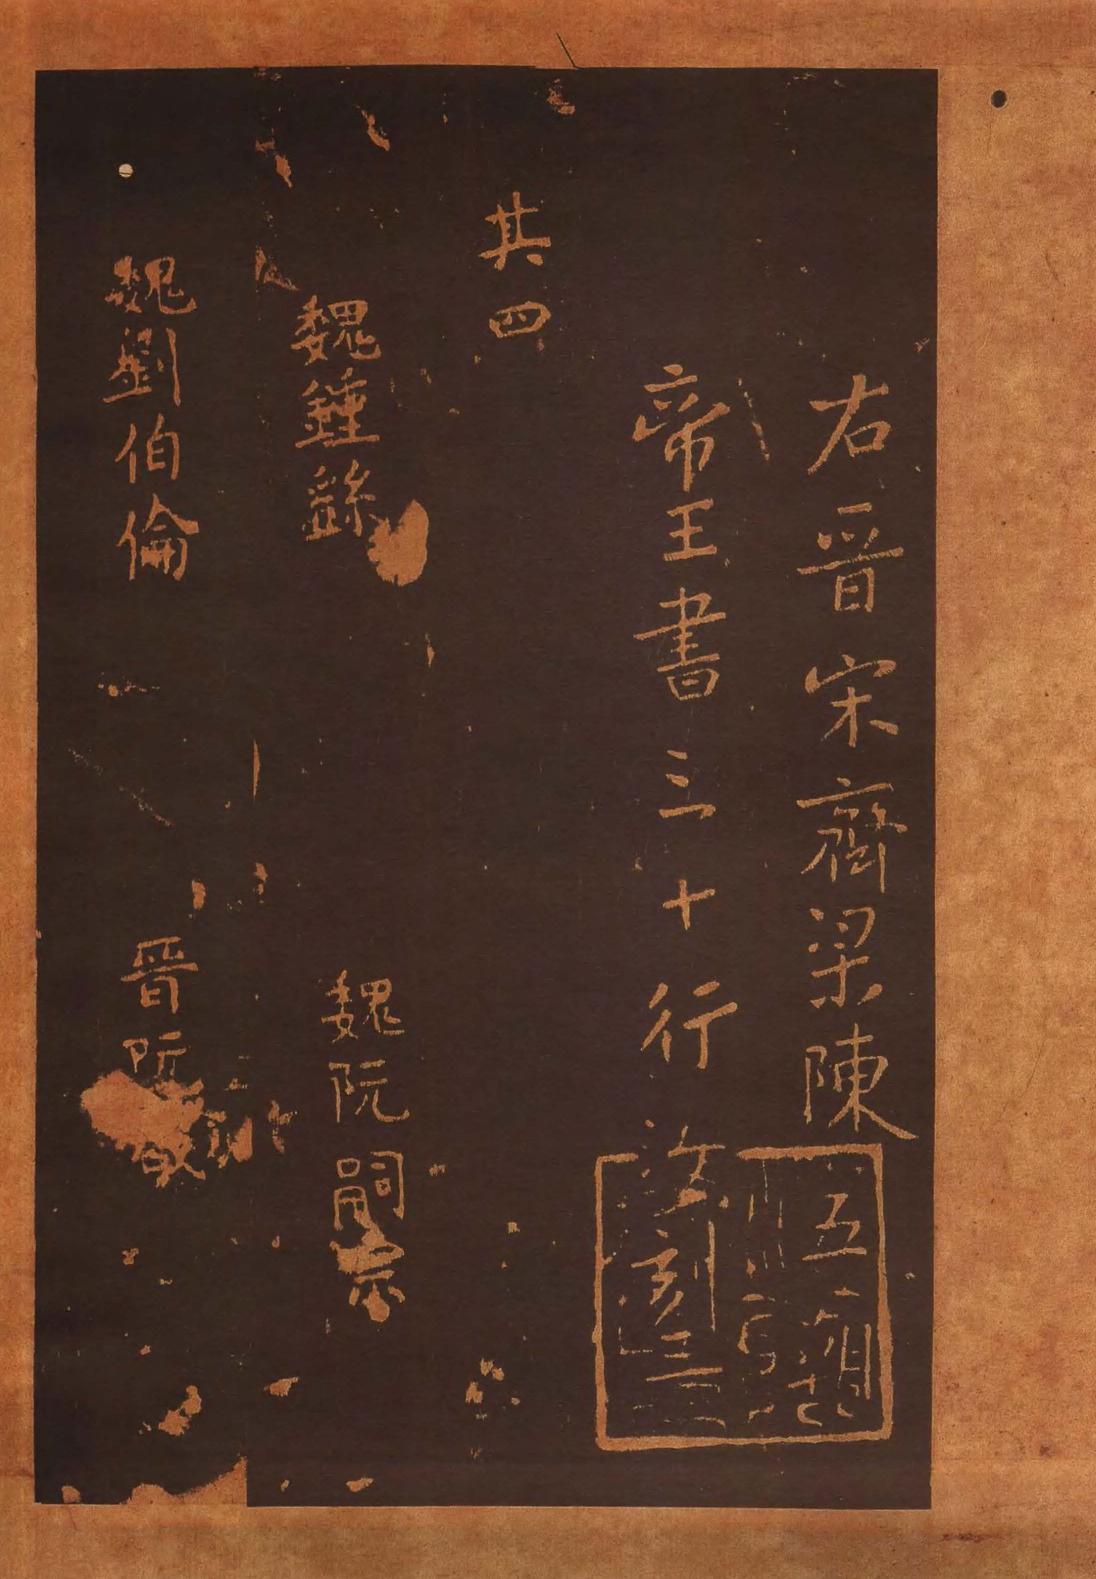 右晋宋齊梁陳
帝王書三十行
其四
魏鍾繇
魏阮嗣宗
魏劉伯倫
晋阮咸